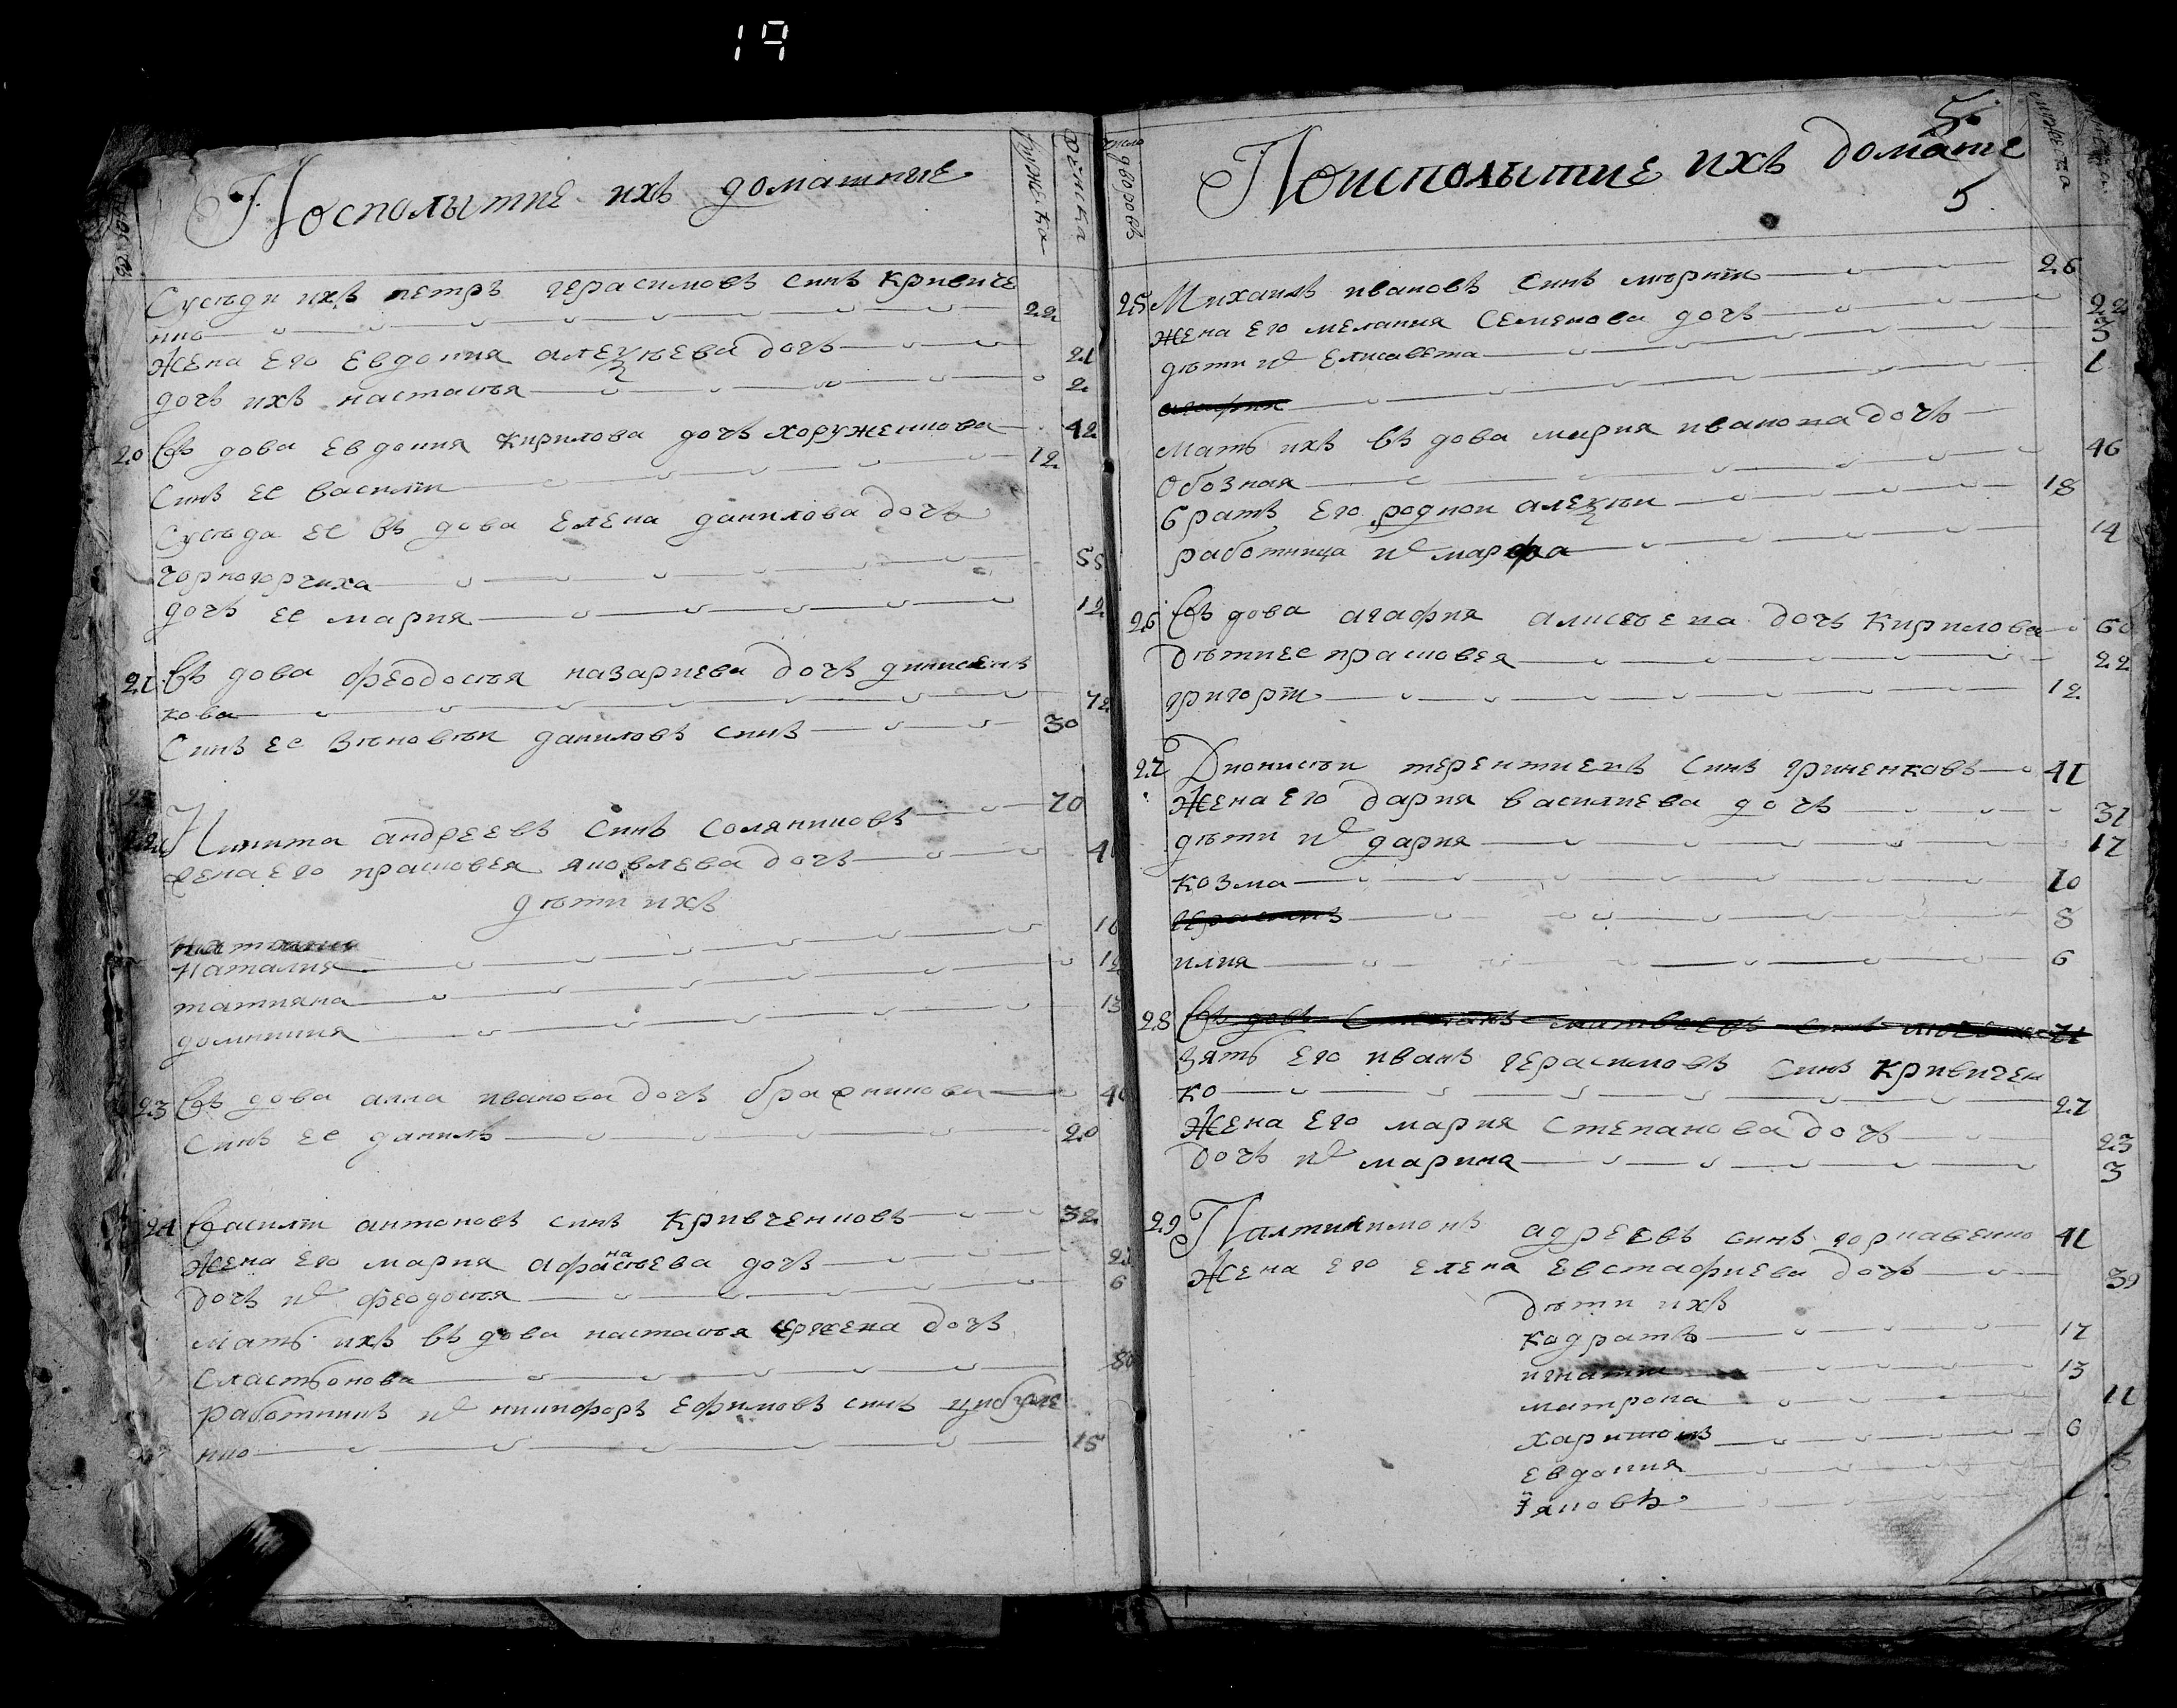 19
Посполытие ихъ доматные
мужеска
женска
Сусѣди ихъ петръ герасимовъ синъ кривиче
нко 22
жена его евдокия алексѣева дочь 21
дочь ихъ настасѣя 2
20 Въ дова евдокия кирилова дочъ хоруженкова 42
синъ ее василий 12
Сусѣда ее въ дова елена данилова дочъ
чорногорчиха 55
дочъ ее мария 12
21 Въ дова феодосѣя назариева дочъ денисенъ
кова 72
Синъ ее зѣновѣи даниловъ синъ 30
22 Никита андреевъ синъ солянниковъ 70
жена его прасковея яковлева дочъ 4
дѣти ихъ
наталия 16
татияна
домникия 13
23 Въ дова анна иванова дочъ бражникова 4
синъ ее данилъ 20
24 Василий антоновъ синъ кривченковъ 32
жена его мария афанасѣева дочъ 2
дочъ ихъ феодосѣя 6
мать ихъ въ дова настасѣя дочъ
Сластьонова 80
работникъ ихъ никифоръ ефимовъ синъ цибуле
нко 15
число дворовъ
Поисполытие ихъ доматие
5.
5
мужеска
25 Михаилъ ивановъ синъ 26
жена его мелания семенова дочъ 22
дѣти ихъ елисавета 3
агафия 1
мать ихъ въ дова мария иванова дочъ
Обозная 46
братъ его роднои алексѣи 18
работница ихъ марфа 14
26 Въ дова агафия алисѣева дочъ кирилова 60
дѣтиее прасковея 22
григорий 12
27 Дионисѣи терентиевъ синъ гриненковъ 41
жена его дария василиева дочъ 31
дѣти ихъ дария 17
козма 10
герасимъ 8
илия 6
28 Въ довъ Степанъ матвеевъ синъ 71
зять его иванъ герасимовъ синъ кривичен
ко 27
жена его мария степанова дочъ 23
дочъ ихъ марина 3
29 адреевъ синъ 41
жена его елена евстафиева дочъ 39
дѣти ихъ
кодратъ 17
игнатий 13
матрона 11
харитонъ 6
евдокия 5
яковъ